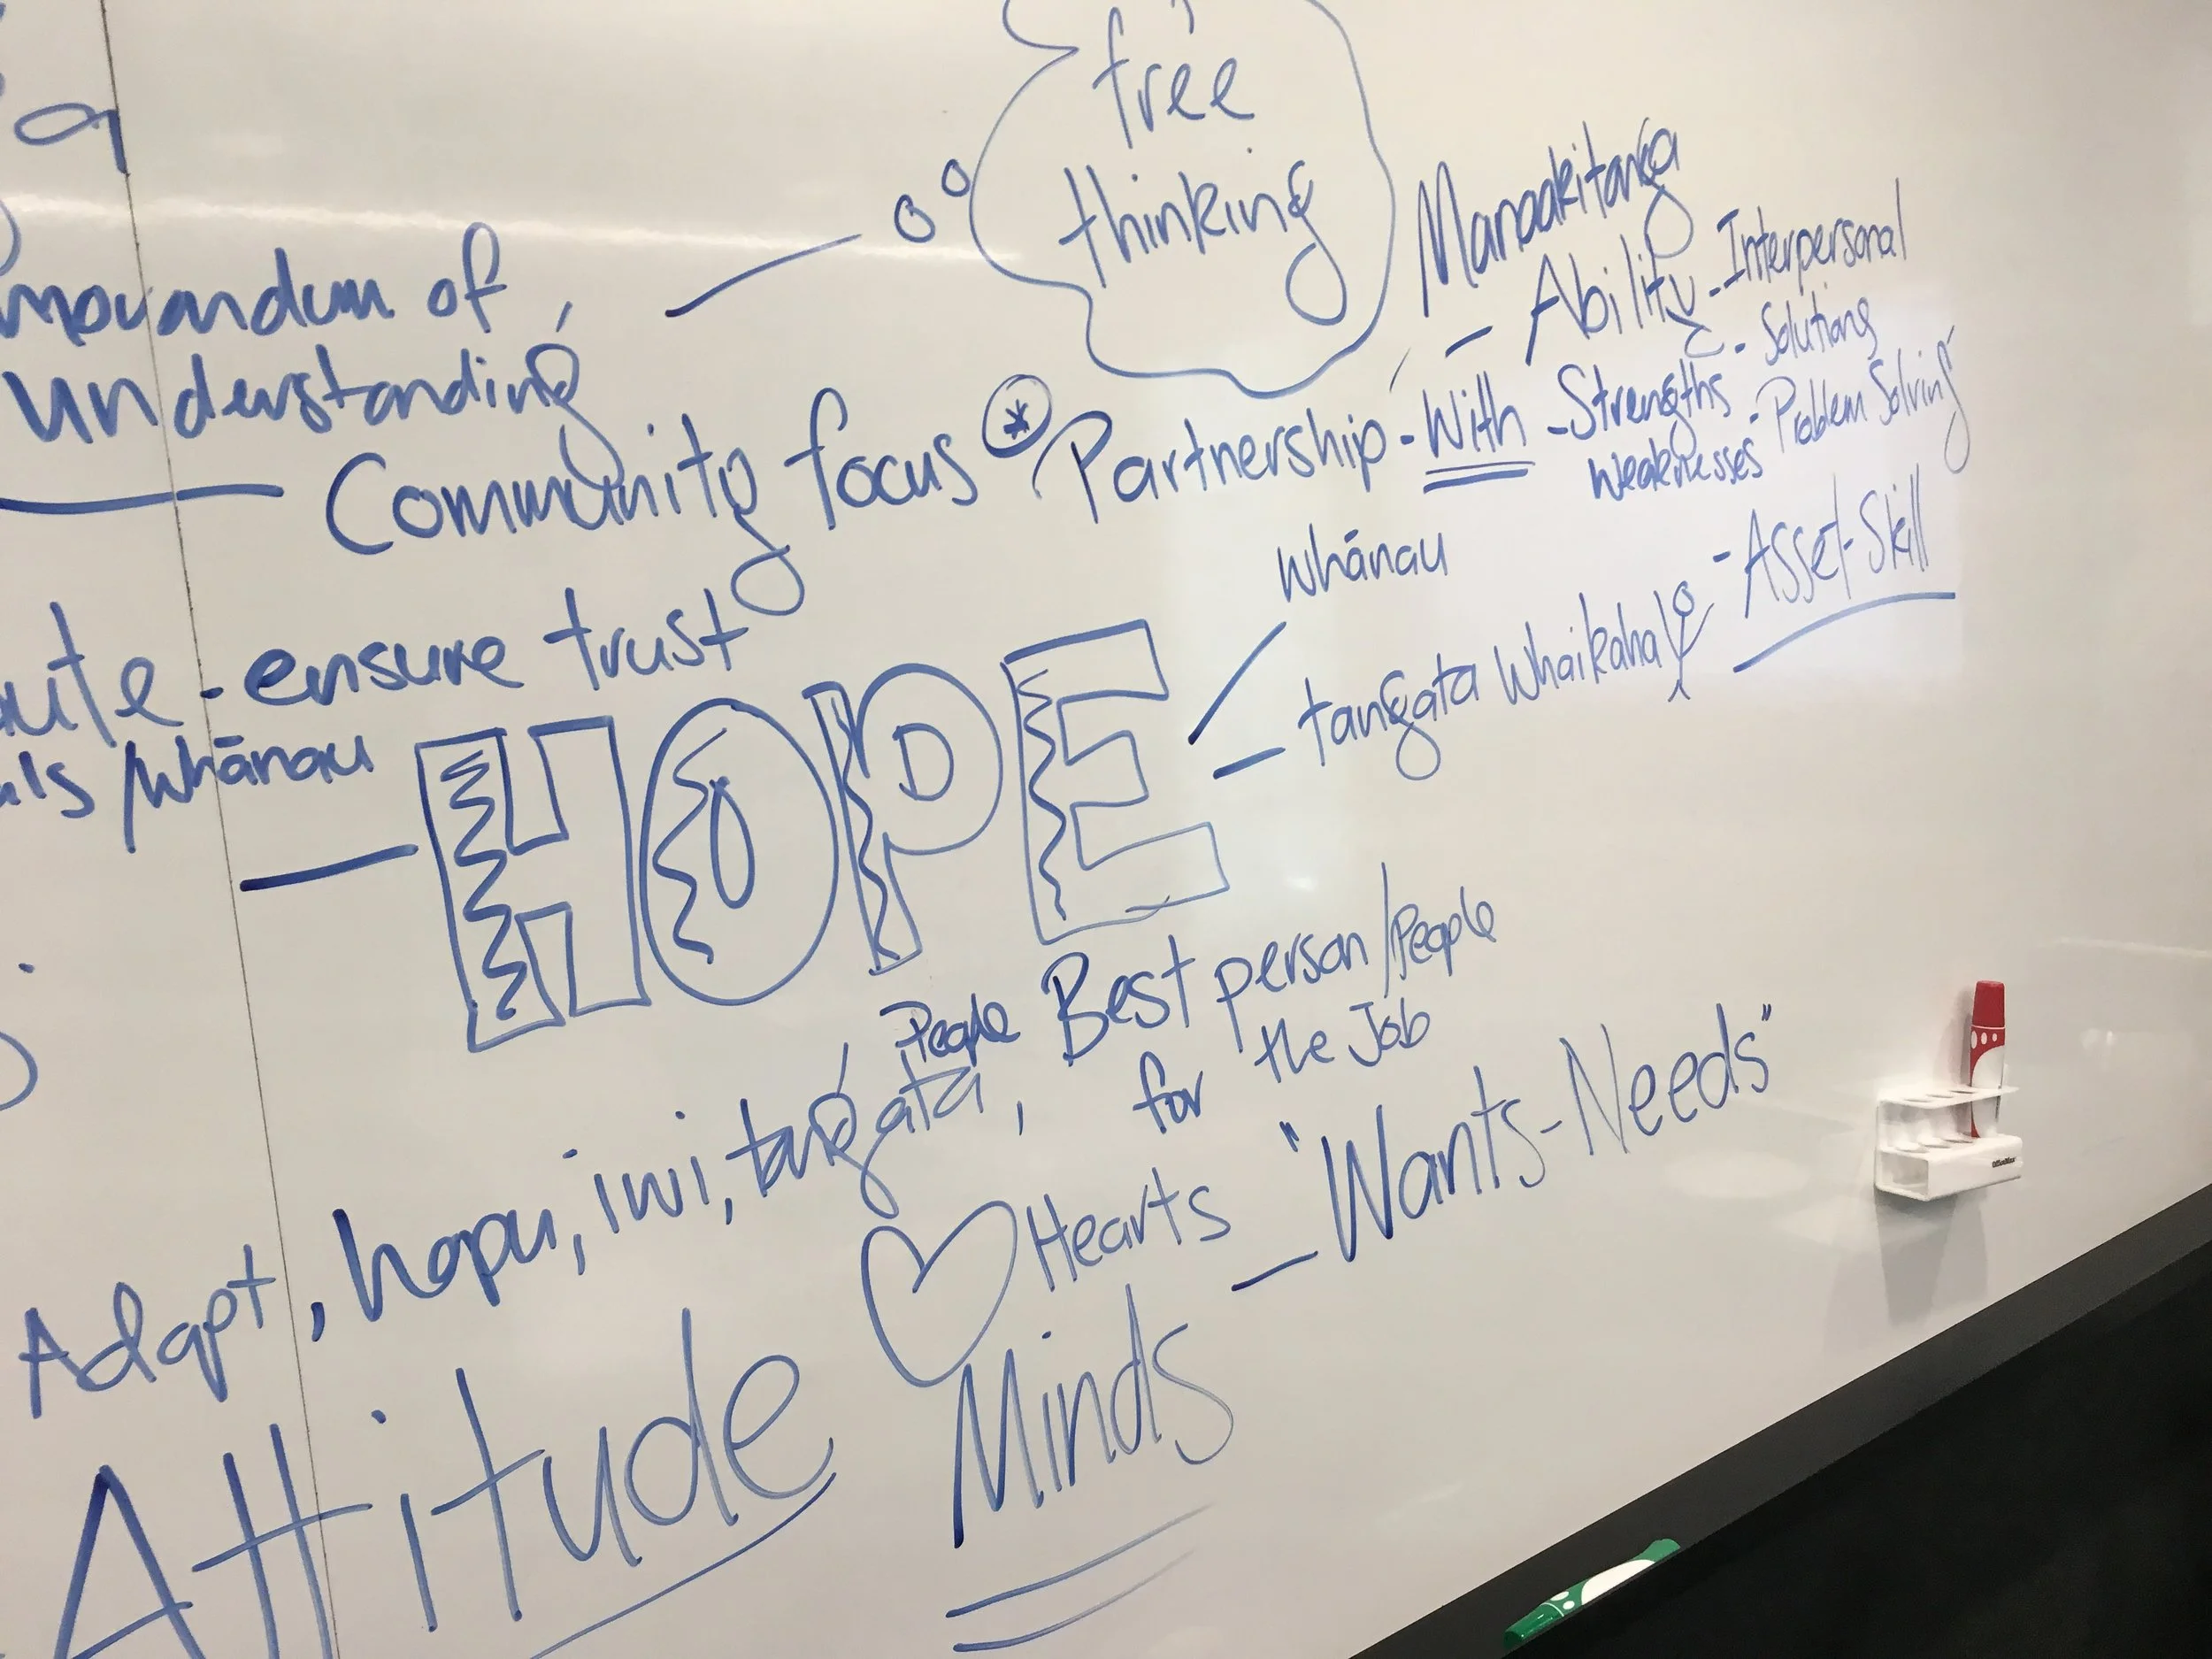 free
thinking
Manaakitanga
- Ability - Interpersonal
- Solutions
of
understanding
Community focus * Partnership - With - Strengths - Problem Solving
Weaknesses
whānau
- ensure trust
tangata Whaikaha - Asset - Skill
/whānau
HOPE
People Best person/People
for the Job
Adapt, hapu, iwi, tangata,
Hearts - "Wants-Needs"
Minds
Attitude